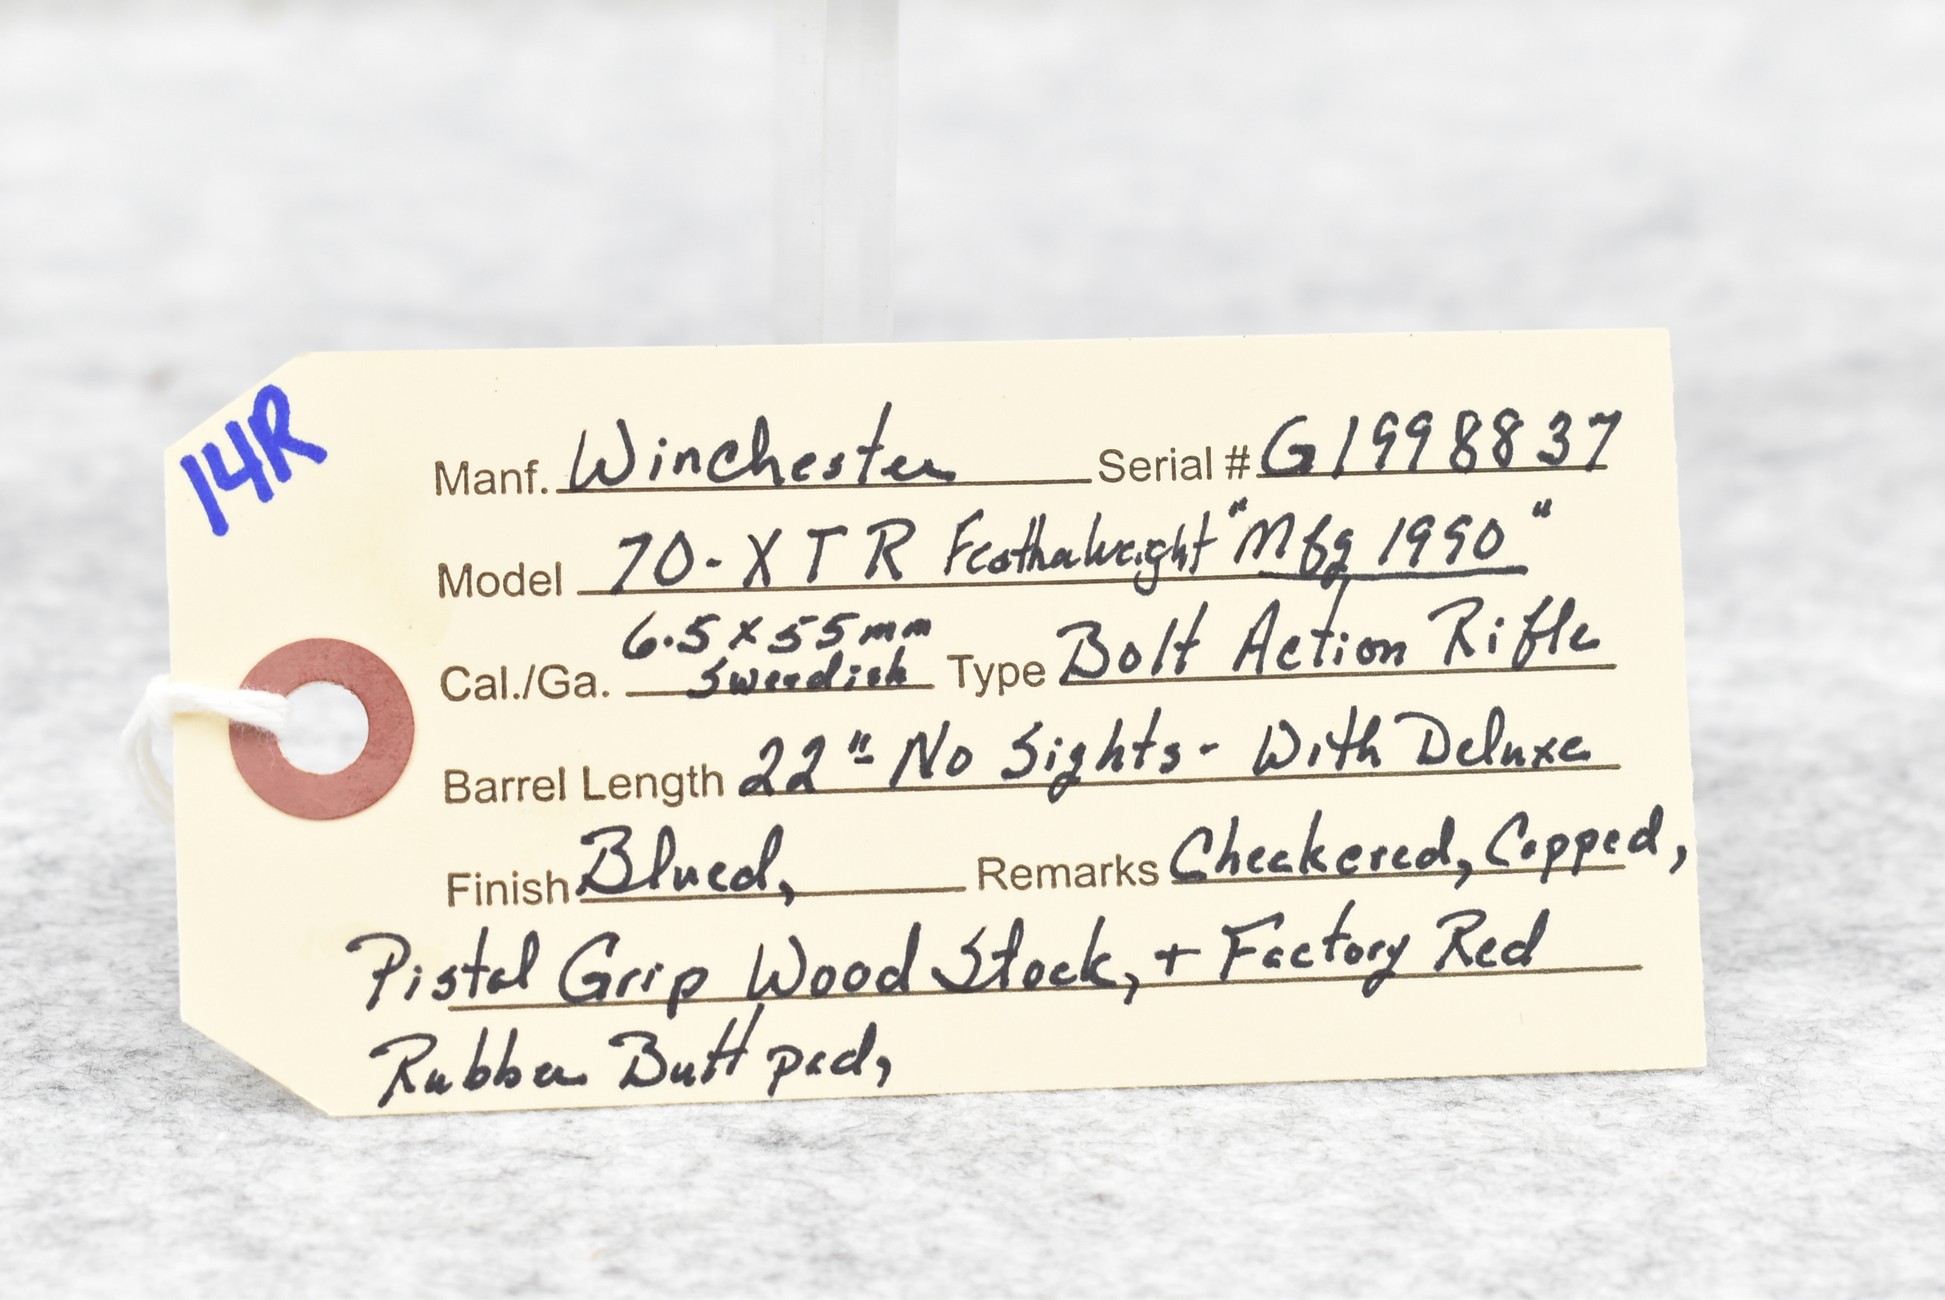 14R
Manf. Winchester Serial # G1998837
Model 70-XTR Featherweight "Mfg 1990"
Cal./Ga. 6.5x55mm Swedish Type Bolt Action Rifle
Barrel Length 22" No Sights - With Deluxe
Finish Blued, Remarks Checkered, Capped,
Pistol Grip Wood Stock, + Factory Red
Rubber Butt pad,